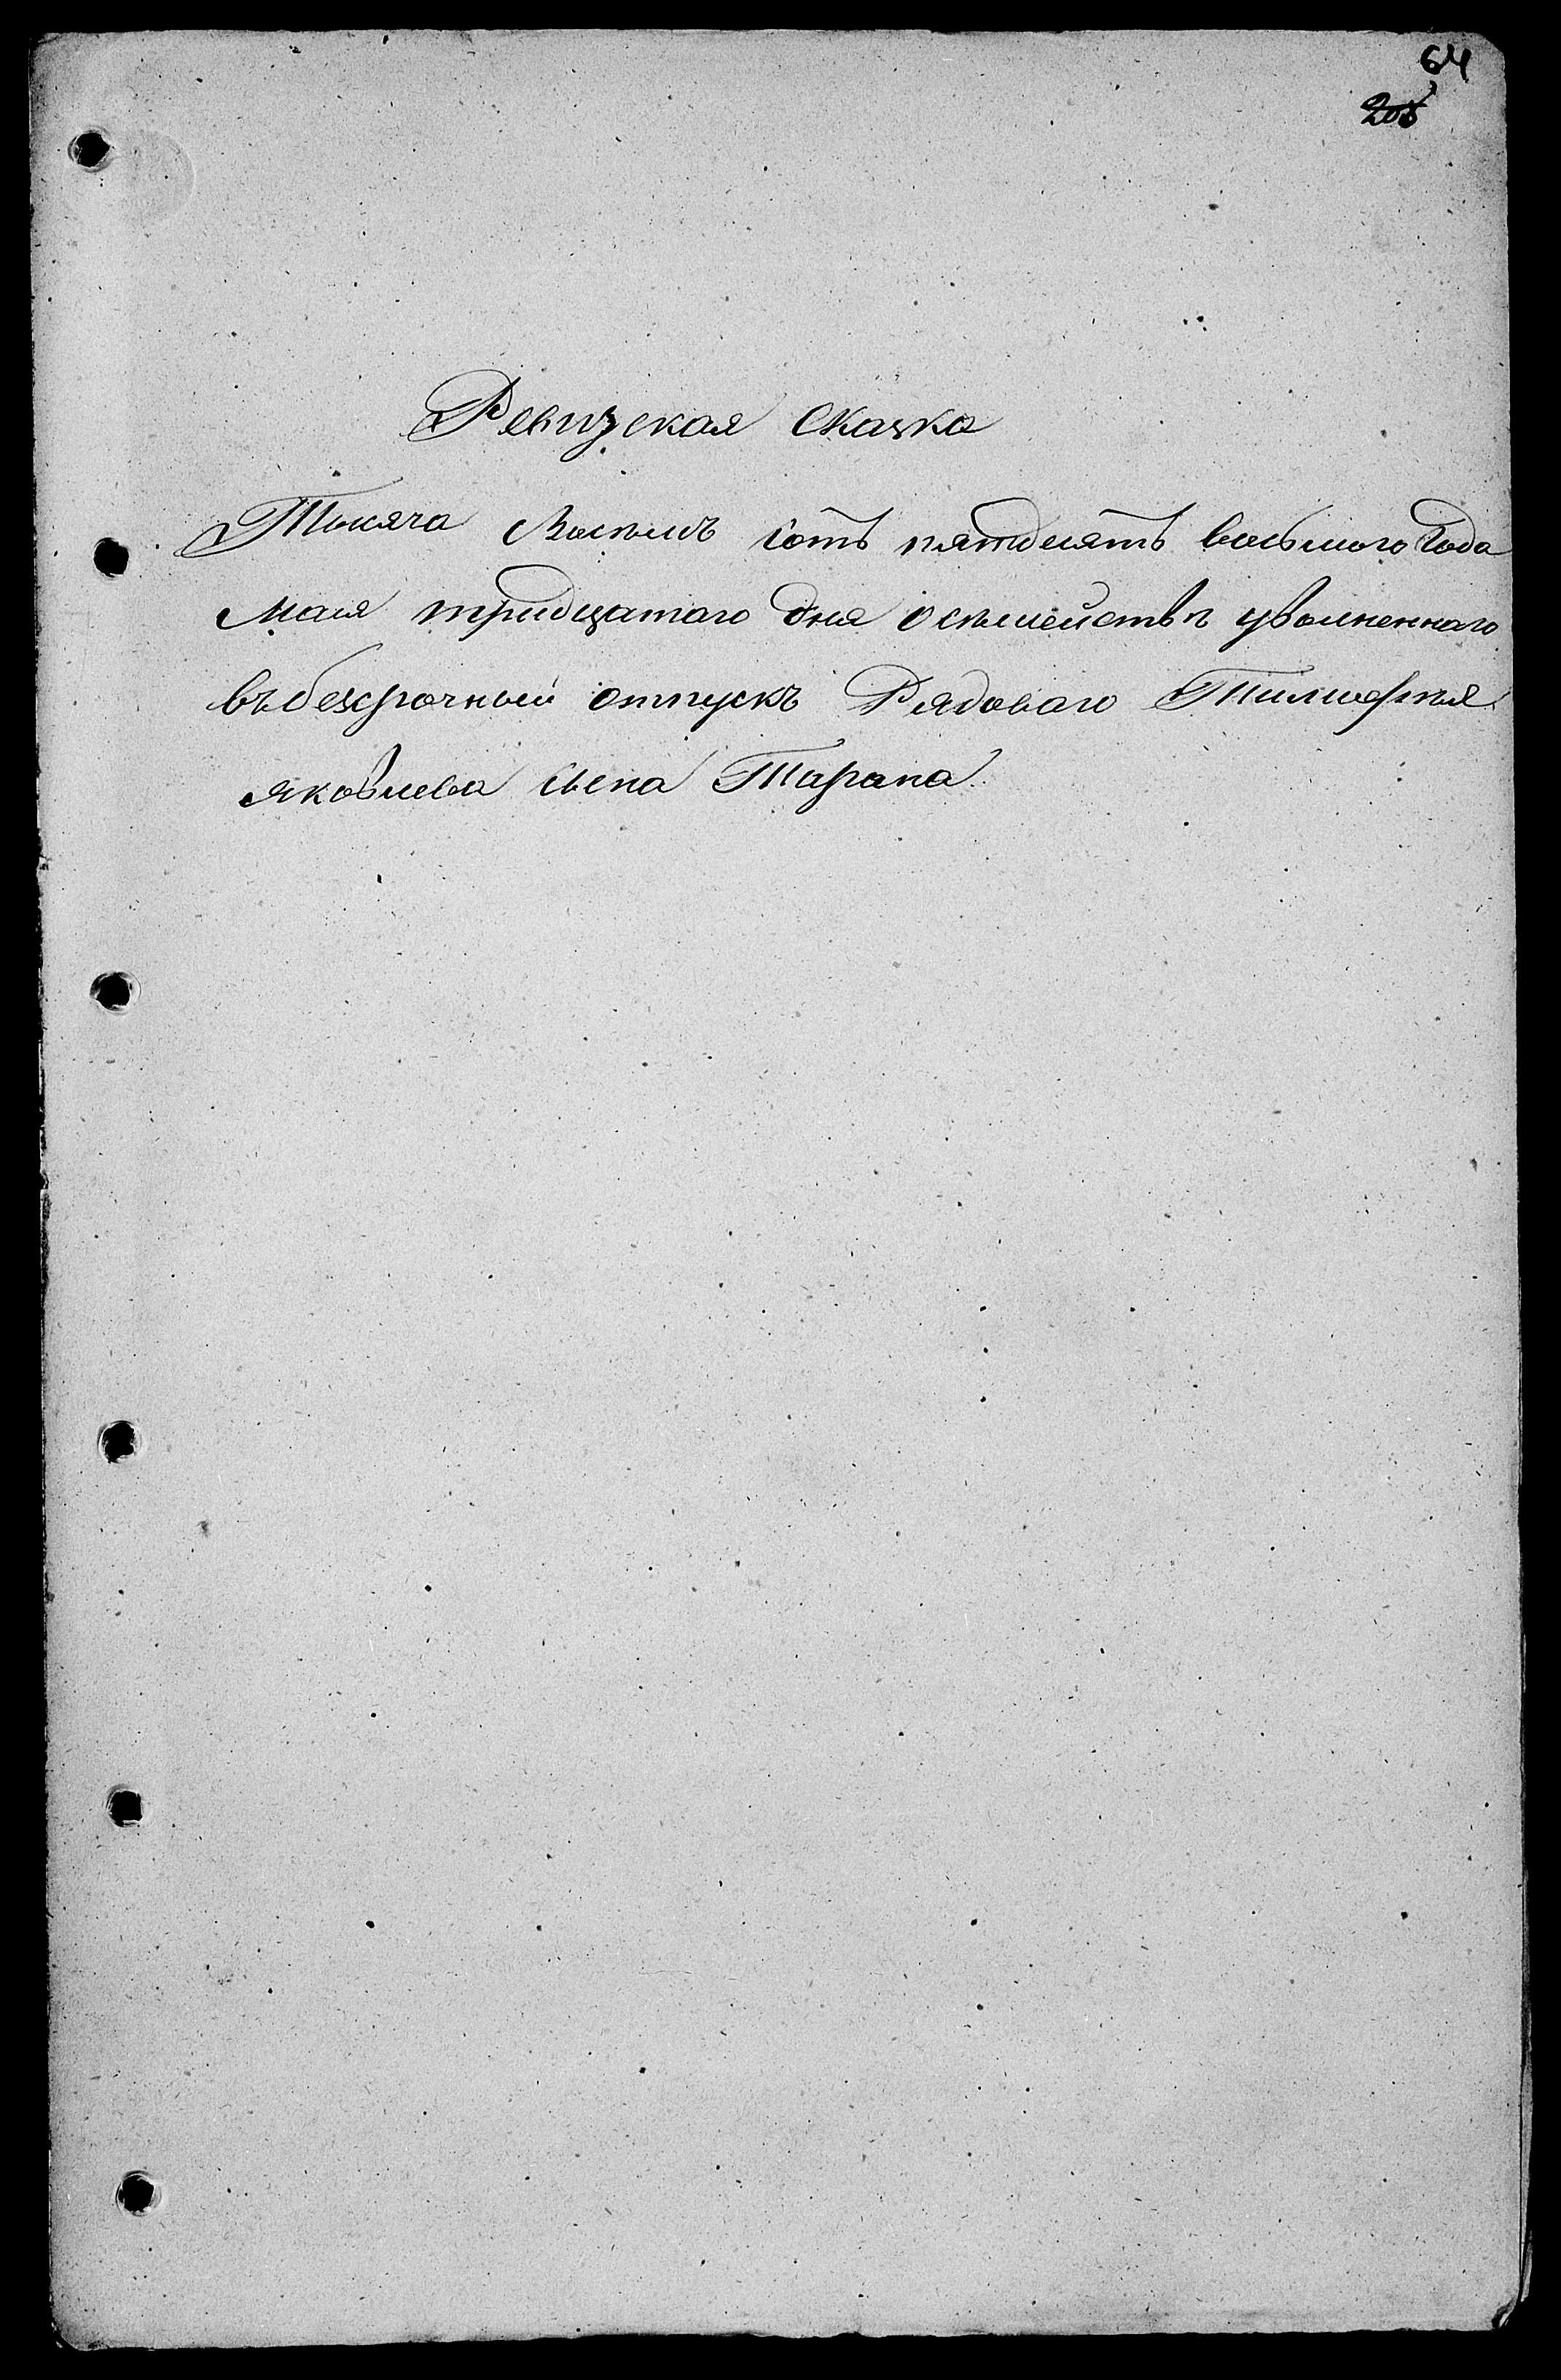 64
208
Ревизская Сказка
Тысяча Восемь сотъ пятдесятъ восьмого Года
Маия тридцатого дня о семействѣ уволненного
въ безсрочный отпускъ Рядоваго Тимофѣя
Яковлева сына Тарана.